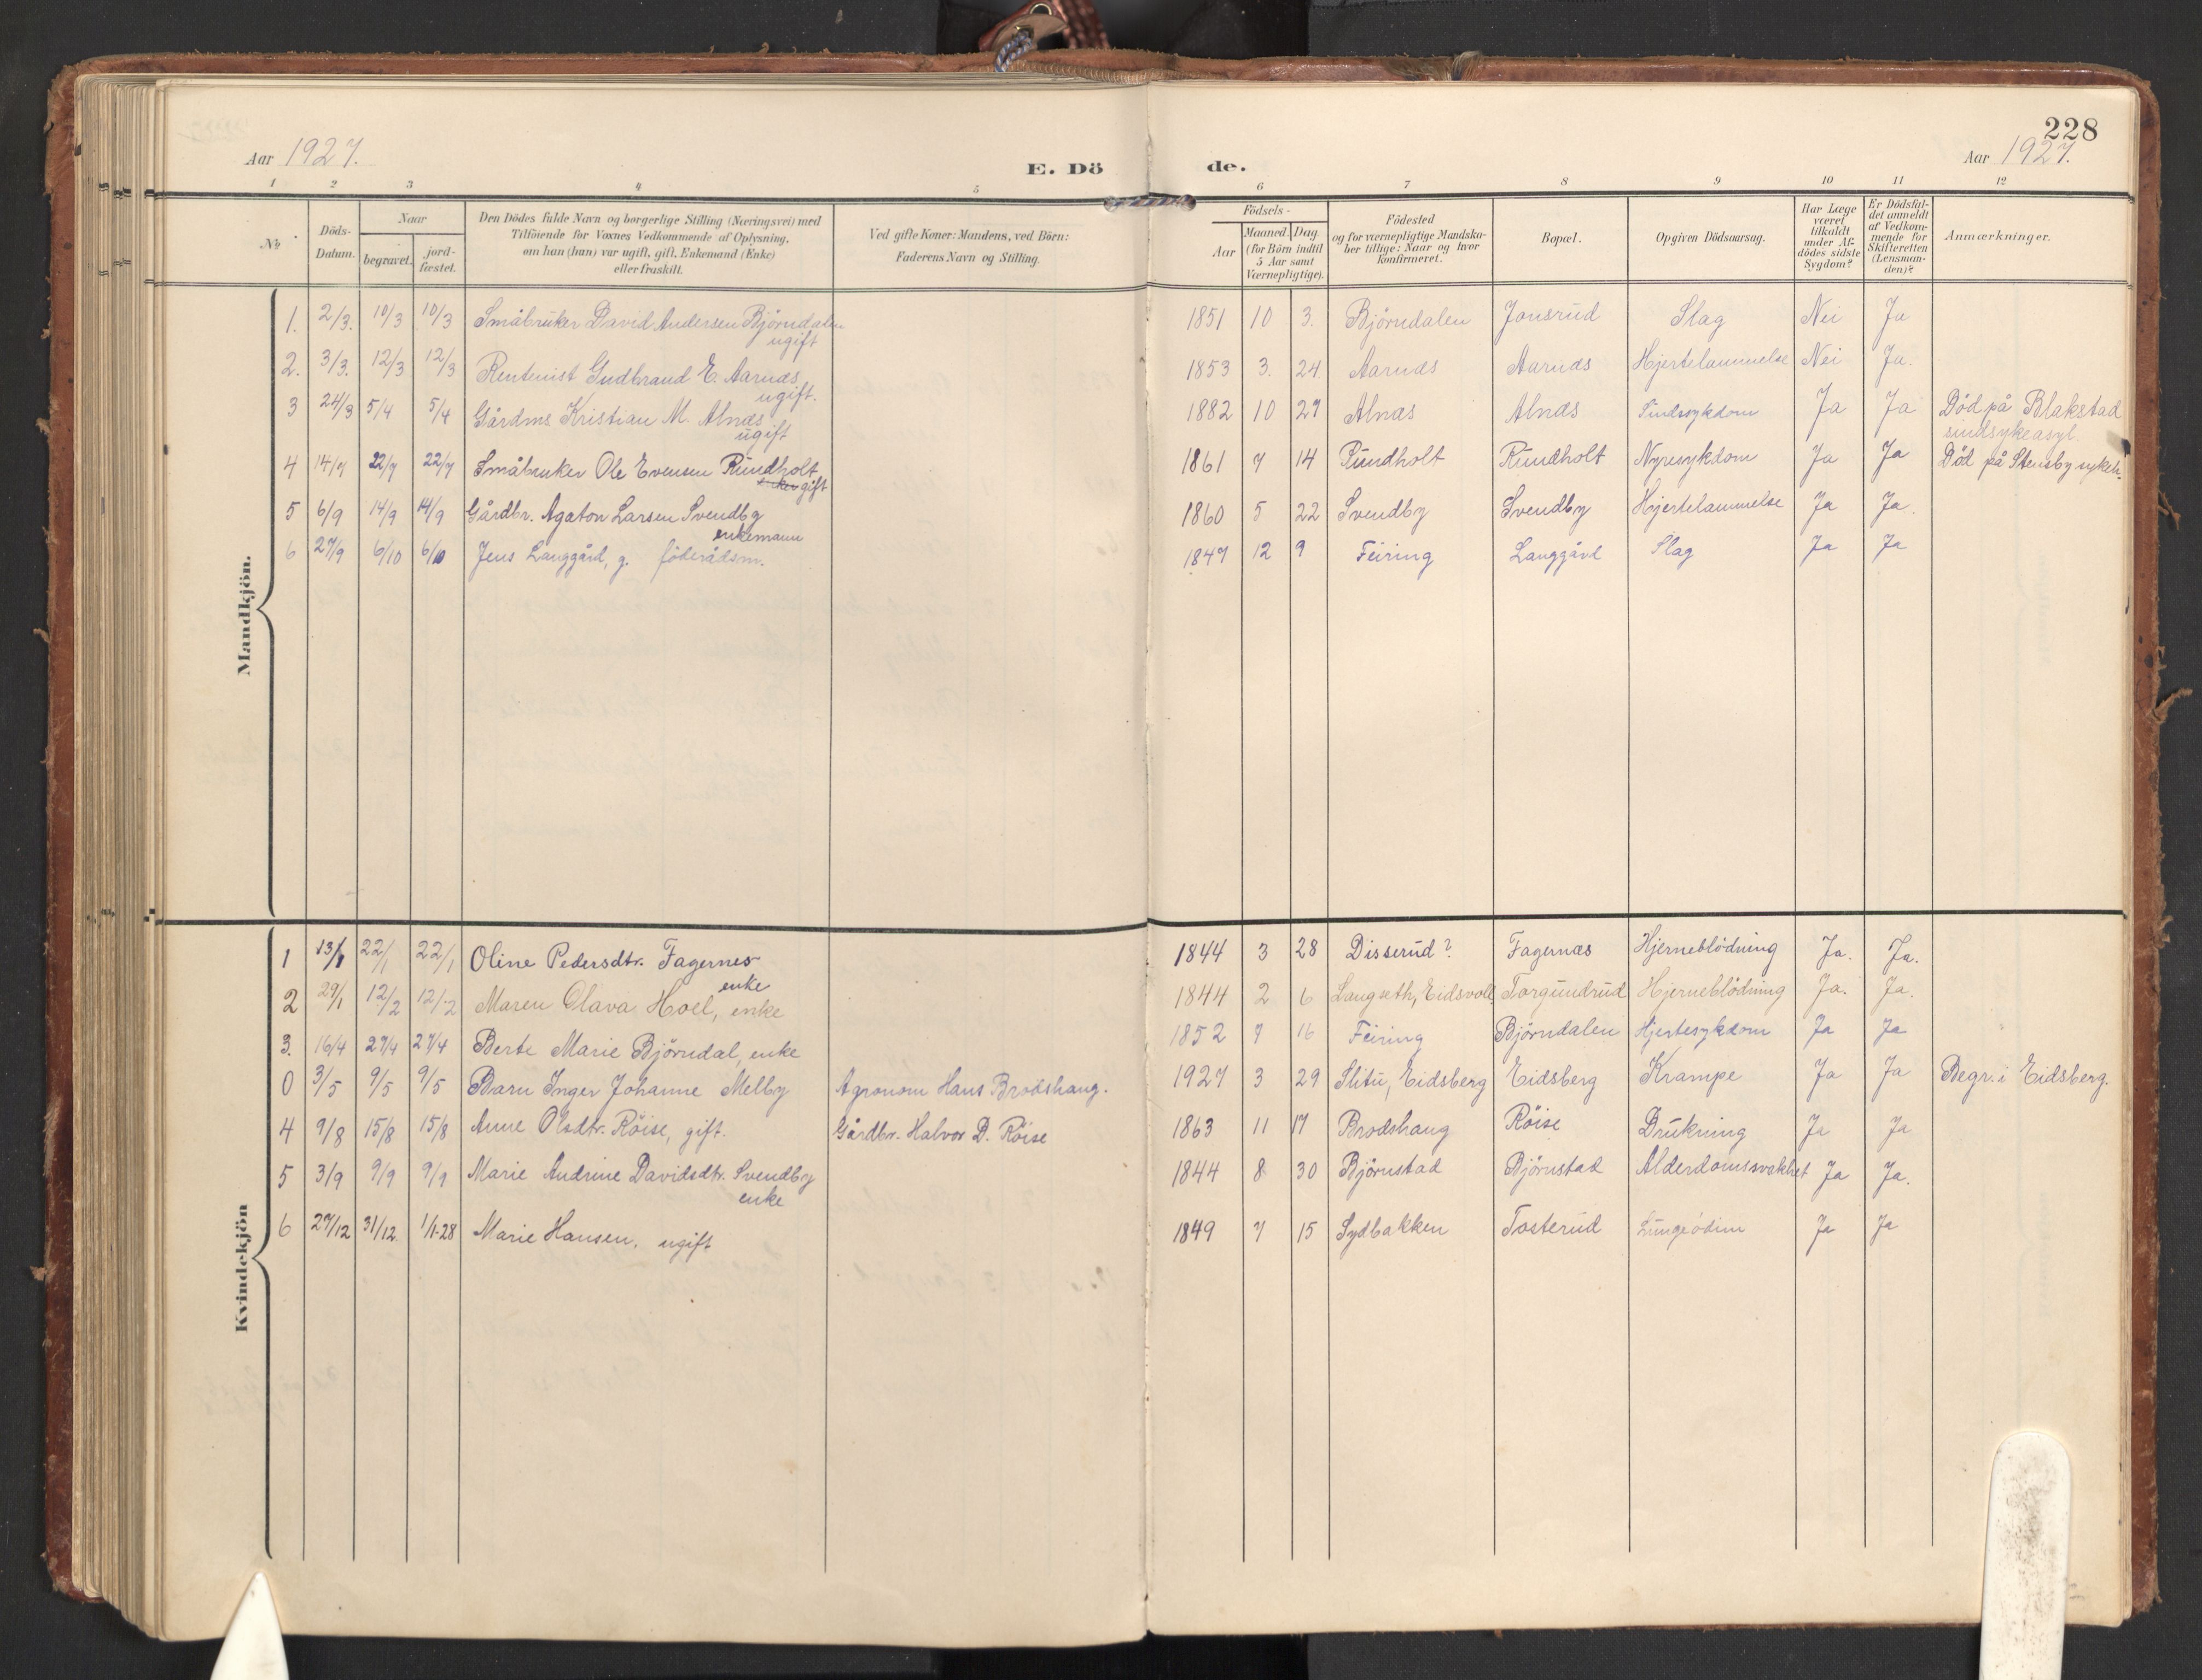 228
Aar 1927.
E. Dö de.
Aar 1927.
1 2 3 4 5 6 7 8 9 10 11 12
No.
Döds-Datum.
Naar
begravet. jord-fæstet.
Den Dödes fulde Navn og borgerlige Stilling (Næringsvei) med
Tilföiende for Voxnes Vedkommende af Oplysning,
om han (hun) var ugift, gift, Enkemand (Enke)
eller fraskilt.
Ved gifte Koner: Mandens, ved Börn:
Faderens Navn og Stilling.
Födsels-
Aar
Maaned. Dag.
(for Börn indtil
5 Aar samt
Værnepligtige).
Födested
og for værnepligtige Mandska-
ber tillige: Naar og hvor
konfirmeret.
Bopæl.
Opgiven Dödsaarsag.
Har Læge
været
tilkaldt
under Af-
dödes sidste
Sygdom?
Er Dödsfal-
det anmeldt
af Vedkom-
mende for
Skifteretten
(Lensman-
den)?
Anmærkninger.
Mandkjön.
1. 2/3. 10/3 10/3 Småbruker David Andersen Björndalen 1851 10 3. Björndalen Jonsrud Slag Nei Ja
ugift
2. 3/3. 12/3 12/3 Rentenist Gudbrand E. Aarnæs 1853 3. 24 Aarnæs Aarnæs Hjertelammelse Nei Ja.
ugift.
3 24/3 5/4 5/4 Gårdms Kristian M. Alnæs 1882 10 27 Alnæs Alnæs Sindssykdom Ja Ja Död på Blakstad
ugift sindsykeasyl.
4 14/7 22/7 22/7 Småbruker Ole Evensen Rundholt 1861 7 14 Rundholt Rundholt Nyresykdom Ja Ja Död på Stensby sykeh.
gift
5 6/9 14/9 14/9 Gårdbr. Agaton Larsen Svendby 1860 5 22 Svendby Svendby Hjertelammelse Ja Ja.
enkemann
6 27/9 6/10 6/10 Jens Langgård, g. föderådsm. 1847 12 9 Feiring Langgård Slag Ja Ja
Kvindekjön
1 13/1 22/1 22/1 Oline Pedersdtr. Fagernes 1844 3 28 Disserud? Fagernæs Hjerneblödning Ja. Ja.
enke
2 29/1 12/2 12/2 Maren Olava Hoel, enke 1844 2 6 Langseth, Eidsvoll Torgundrud Hjerneblödning Ja. Ja.
3. 16/4 27/4 27/4 Berte Marie Björndal, enke 1852 7 16 Feiring Björndalen Hjertesykdom Ja Ja
0 3/5 9/5 9/5 Barn Inger Johanne Melby Agronom Hans Brodshaug. 1927 3 29 Slitu, Eidsberg Eidsberg Krampe Ja Ja Begr. i Eidsberg.
4 9/8 15/8 15/8 Anne Olsdtr. Röise, gift. Gårdbr. Halvor D. Röise 1863 11 17 Brodshaug Röise Drukning Ja Ja
5 3/9 9/9 9/9 Marie Andrine Davidsdtr. Svendby 1844 8 30 Björnstad Björnstad Alderdomssvakhet Ja Ja.
enke
6 27/12 31/12 1/1-28 Marie Hansen, ugift 1849 7 15 Sydbakken Tosterud Lungeödim Ja Ja